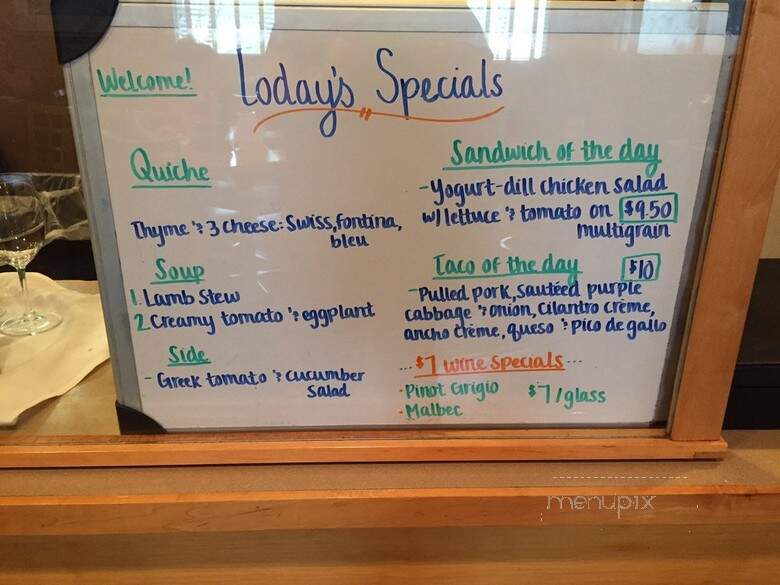 Welcome!
Today's Specials
Quiche
Thyme & 3 cheese: Swiss, fontina,
bleu
Soup
1. Lamb Stew
2. Creamy tomato & eggplant
Side
- Greek tomato & cucumber
Salad
Sandwich of the day
- Yogurt-dill chicken salad
w/ lettuce & tomato on $9.50
multigrain
Taco of the day $10
- Pulled pork, sautéed purple
cabbage & onion, cilantro crème,
ancho crème, queso & pico de gallo
... $7 wine specials ...
- Pinot Grigio $7/glass
- Malbec
menupix